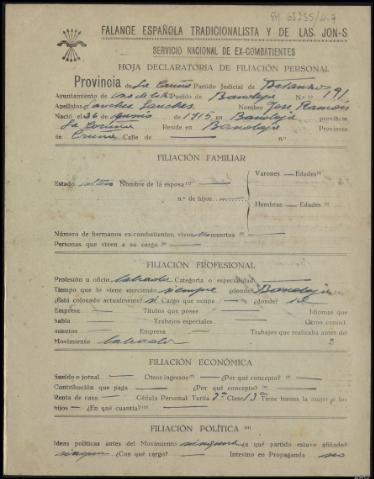 FALANGE ESPAÑOLA TRADICIONALISTA Y DE LAS JON-S
SERVICIO NACIONAL DE EX-COMBATIENTES
HOJA DECLARATORIA DE FILIACIÓN PERSONAL
Provincia de La Coruña Partido Judicial de Betanzos
Ayuntamiento de Pueblo de Bandoja N.º 191
Apellidos Sanchez Sanchez Nombre Jose Ramón
Nació el 26 de Junio de 1915 en Bandoja provincia
La Coruña Reside en Bandoja Provincia
Coruña Calle de n.º
FILIACIÓN FAMILIAR
Varones — Edades
Estado soltero Nombre de la esposa
n.º de hijos
Hembras — Edades
Número de hermanos ex-combatientes, vivos muertos
Personas que viven a su cargo
FILIACIÓN PROFESIONAL
Profesión u oficio labrador Categoria o especialidad
Tiempo que lo viene ejerciendo siempre ¿dónde? Bandoja
¿Está colocado actualmente? si Cargo que ocupa ¿dónde?
Empresa Títulos que posee Idiomas que
habla Trabajos especiales Otros conoci-
mientos Empresa Trabajos que realizaba antes del
Movimiento labrador
FILIACIÓN ECONÓMICA
Sueldo o jornal Otros ingresos ¿Por qué concepto?
Contribución que paga ¿Por qué concepto?
Renta de casa Cédula Personal Tarifa Clase 13 Tiene bienes la mujer o los
hijos ¿En qué cuantía?
FILIACIÓN POLÍTICA
Ideas políticas antes del Movimiento ninguna ¿a qué partido estuvo afiliado?
ningun ¿Con qué cargo? Intestino en Propaganda no